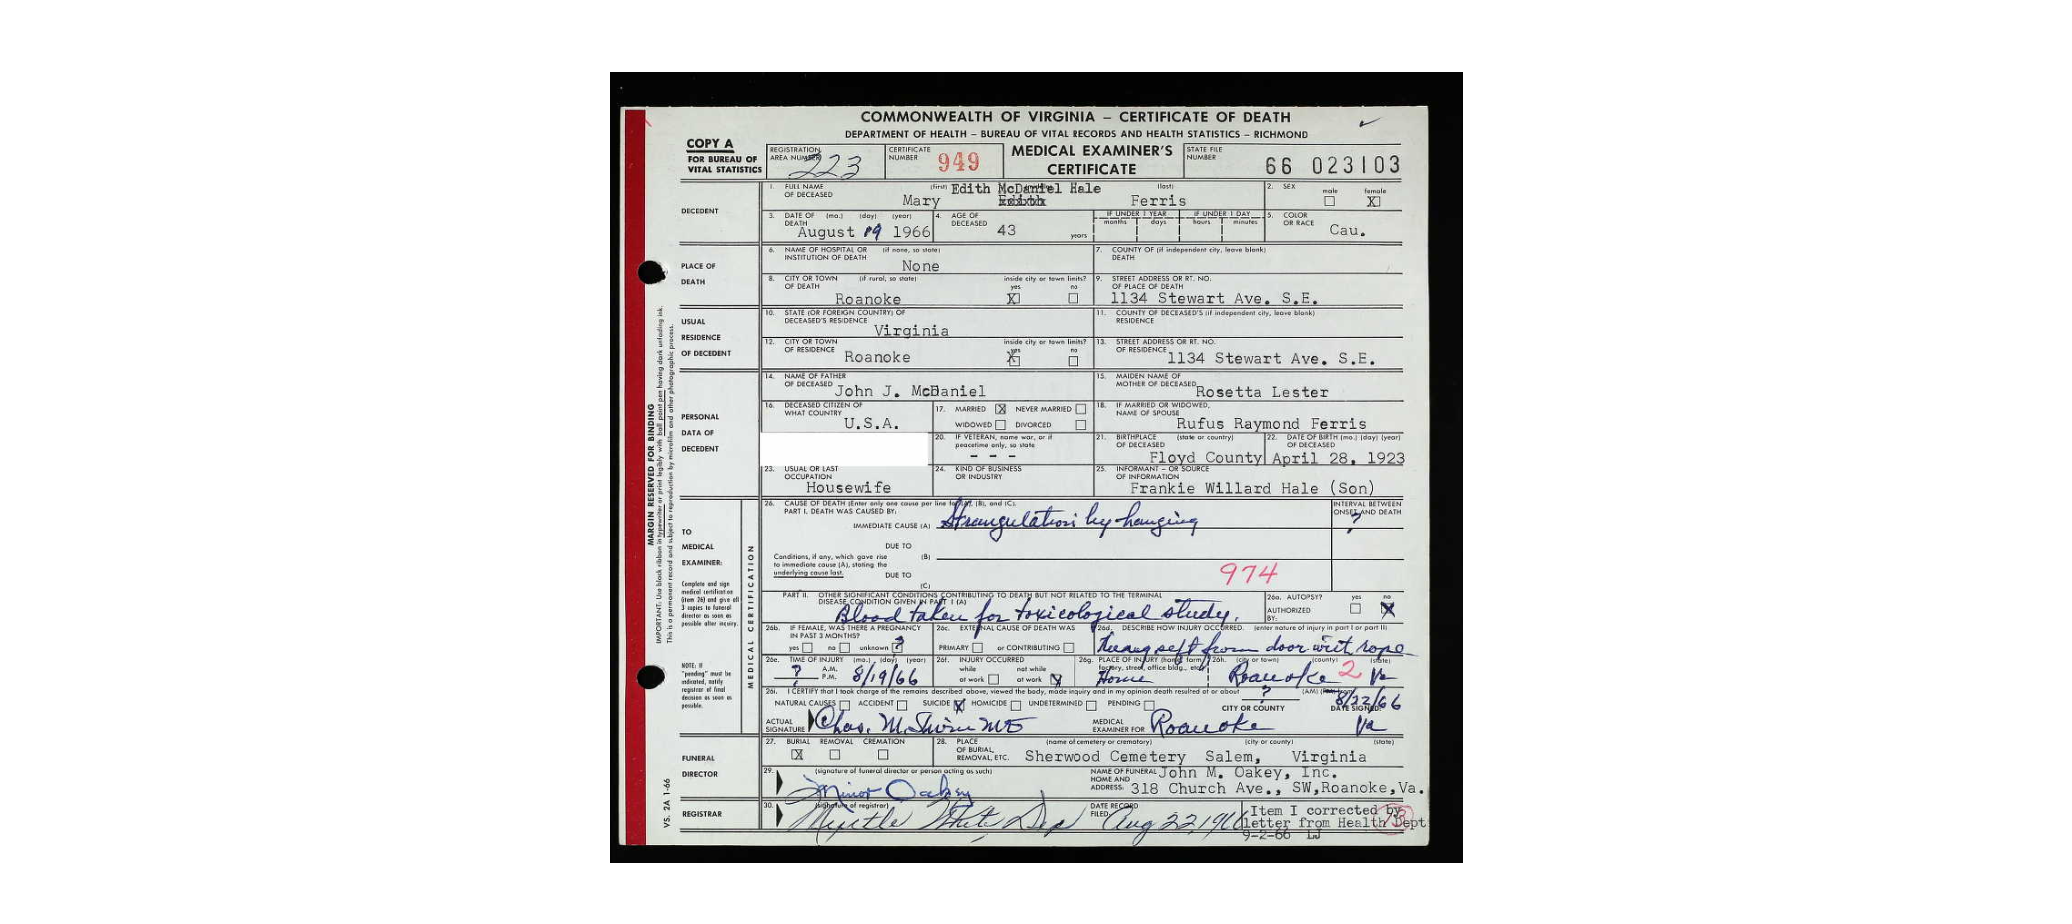 COMMONWEALTH OF VIRGINIA – CERTIFICATE OF DEATH
DEPARTMENT OF HEALTH – BUREAU OF VITAL RECORDS AND HEALTH STATISTICS – RICHMOND
COPY A
FOR BUREAU OF VITAL STATISTICS
REGISTRATION AREA NUMBER 223
CERTIFICATE NUMBER 949
MEDICAL EXAMINER'S CERTIFICATE
STATE FILE NUMBER 66 023103
DECEDENT
1. FULL NAME OF DECEASED (first) (last)
Edith McDaniel Hale
Mary Edith Ferris
2. SEX male female X
3. DATE OF DEATH (mo.) (day) (year) August 19 1966
4. AGE OF DECEASED 43 years
IF UNDER 1 YEAR months days
IF UNDER 1 DAY hours minutes
5. COLOR OR RACE Cau.
PLACE OF DEATH
6. NAME OF HOSPITAL OR INSTITUTION OF DEATH (if none, so state) None
7. COUNTY OF DEATH (if independent city, leave blank)
8. CITY OR TOWN OF DEATH (if rural, so state) Roanoke
inside city or town limits? yes X no
9. STREET ADDRESS OR RT. NO. OF PLACE OF DEATH 1134 Stewart Ave. S.E.
USUAL RESIDENCE OF DECEDENT
10. STATE (OR FOREIGN COUNTRY) OF DECEASED'S RESIDENCE Virginia
11. COUNTY OF DECEASED'S RESIDENCE (if independent city, leave blank)
12. CITY OR TOWN OF RESIDENCE Roanoke
inside city or town limits? yes X no
13. STREET ADDRESS OR RT. NO. OF RESIDENCE 1134 Stewart Ave. S.E.
PERSONAL DATA OF DECEDENT
14. NAME OF FATHER OF DECEASED John J. McDaniel
15. MAIDEN NAME OF MOTHER OF DECEASED Rosetta Lester
16. DECEASED CITIZEN OF WHAT COUNTRY U.S.A.
17. MARRIED X NEVER MARRIED WIDOWED DIVORCED
18. IF MARRIED OR WIDOWED, NAME OF SPOUSE Rufus Raymond Ferris
20. IF VETERAN, name war, or if peacetime only, so state - - -
21. BIRTHPLACE OF DECEASED (state or country) Floyd County
22. DATE OF BIRTH OF DECEASED (mo.) (day) (year) April 28, 1923
23. USUAL OR LAST OCCUPATION Housewife
24. KIND OF BUSINESS OR INDUSTRY
25. INFORMANT – OR SOURCE OF INFORMATION Frankie Willard Hale (Son)
TO MEDICAL EXAMINER:
Complete and sign medical certification (item 26) and give all 3 copies to funeral director as soon as possible after inquiry.
NOTE: If "pending" must be indicated, notify registrar of final decision as soon as possible.
MEDICAL CERTIFICATION
26. CAUSE OF DEATH (Enter only one cause per line for (A), (B), and (C).
PART I. DEATH WAS CAUSED BY:
IMMEDIATE CAUSE (A) Strangulation by hanging
INTERVAL BETWEEN ONSET AND DEATH ?
DUE TO (B)
Conditions, if any, which gave rise to immediate cause (A), stating the underlying cause last.
DUE TO (C)
974
PART II. OTHER SIGNIFICANT CONDITIONS CONTRIBUTING TO DEATH BUT NOT RELATED TO THE TERMINAL DISEASE CONDITION GIVEN IN PART I (A)
Blood taken for toxicological study.
26a. AUTOPSY? yes no X
AUTHORIZED BY:
26b. IF FEMALE, WAS THERE A PREGNANCY IN PAST 3 MONTHS? yes no unknown ?
26c. EXTERNAL CAUSE OF DEATH WAS PRIMARY or CONTRIBUTING
26d. DESCRIBE HOW INJURY OCCURRED. (enter nature of injury in part I or part II)
Hung self from door wit rope
26e. TIME OF INJURY (mo.) (day) (year) ? A.M. P.M. 8/19/66
26f. INJURY OCCURRED while at work not while at work X
26g. PLACE OF INJURY (home, farm, factory, street, office bldg., etc.) Home
26h. (city or town) (county) (state) Roanoke 2 Va
26i. I CERTIFY that I took charge of the remains described above, viewed the body, made inquiry and in my opinion death resulted at or about ?
NATURAL CAUSES ACCIDENT SUICIDE X HOMICIDE UNDETERMINED PENDING
CITY OR COUNTY
DATE SIGNED: 8/22/66
ACTUAL SIGNATURE Chas. M. Irvin MD
MEDICAL EXAMINER FOR Roanoke Va
FUNERAL DIRECTOR
27. BURIAL X REMOVAL CREMATION
28. PLACE OF BURIAL, REMOVAL, ETC. (name of cemetery or crematory) (city or county) (state)
Sherwood Cemetery Salem, Virginia
29. (signature of funeral director or person acting as such) Minor Oakey
NAME OF FUNERAL HOME AND ADDRESS: John M. Oakey, Inc.
318 Church Ave., SW,Roanoke,Va.
REGISTRAR
30. (signature of registrar) Myrtle White Dep
DATE RECORD FILED: Aug 22, 1966
Item I corrected by
letter from Health Dept
9-2-66 LJ
MARGIN RESERVED FOR BINDING
IMPORTANT: Use black ribbon in typewriter or print legibly with ball point pen having dark unfading ink.
This is a permanent record and subject to reproduction by microfilm and other photographic process.
VS. 2A 1-66